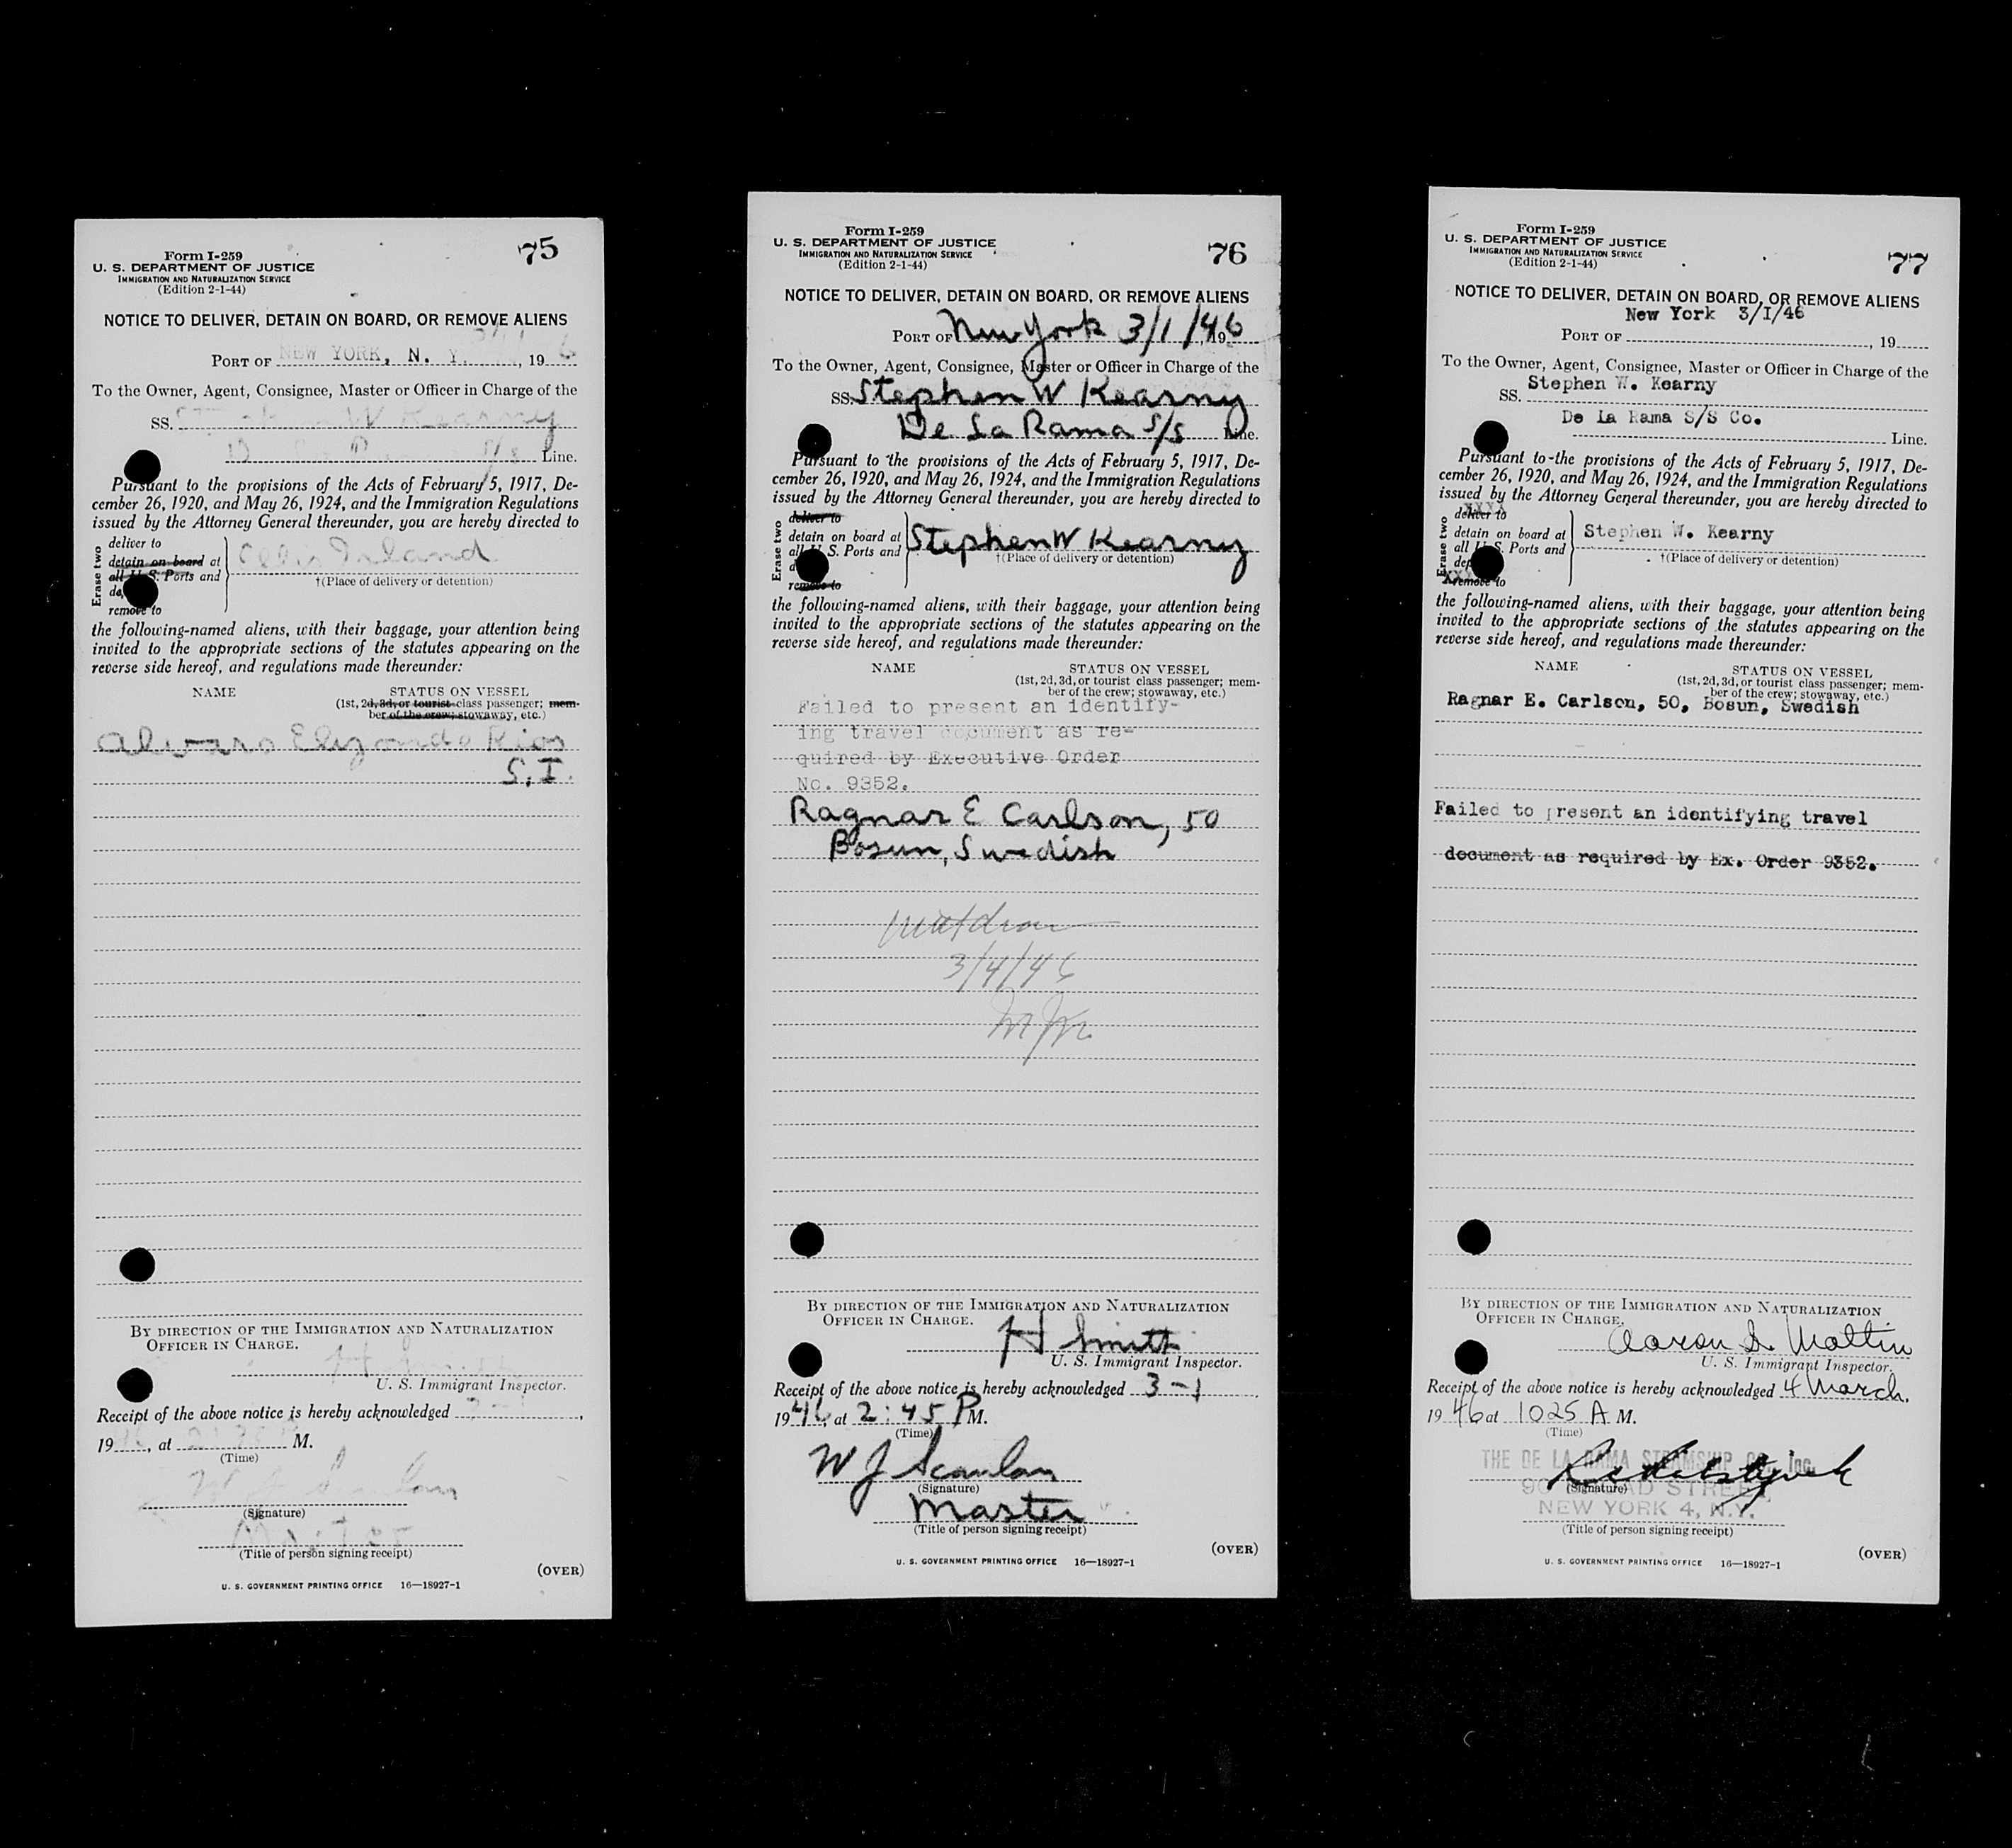 75
Form I-259
U. S. DEPARTMENT OF JUSTICE
IMMIGRATION AND NATURALIZATION SERVICE
(Edition 2-1-44)
NOTICE TO DELIVER, DETAIN ON BOARD, OR REMOVE ALIENS
PORT OF NEW YORK, N. Y. , 19 6
To the Owner, Agent, Consignee, Master or Officer in Charge of the
SS. W Kearny
Line.
Pursuant to the provisions of the Acts of February 5, 1917, De-
cember 26, 1920, and May 26, 1924, and the Immigration Regulations
issued by the Attorney General thereunder, you are hereby directed to
Erase two
deliver to
detain on board at
all U. S. Ports and
remove to
Ellis Island
†(Place of delivery or detention)
the following-named aliens, with their baggage, your attention being
invited to the appropriate sections of the statutes appearing on the
reverse side hereof, and regulations made thereunder:
NAME STATUS ON VESSEL
(1st, 2d, 3d, or tourist class passenger; mem-
ber of the crew; stowaway, etc.)
Alvaro Elizondo Rios
S. I.
BY DIRECTION OF THE IMMIGRATION AND NATURALIZATION
OFFICER IN CHARGE.
H Smith
U. S. Immigrant Inspector.
Receipt of the above notice is hereby acknowledged 3-1,
19 46, at M.
(Time)
W J Scanlan
(Signature)
Master
(Title of person signing receipt)
(OVER)
U. S. GOVERNMENT PRINTING OFFICE 16—18927-1
76
Form I-259
U. S. DEPARTMENT OF JUSTICE
IMMIGRATION AND NATURALIZATION SERVICE
(Edition 2-1-44)
NOTICE TO DELIVER, DETAIN ON BOARD, OR REMOVE ALIENS
PORT OF New York 3/1/46, 19
To the Owner, Agent, Consignee, Master or Officer in Charge of the
SS. Stephen W Kearny
De La Rama S/S Line.
Pursuant to the provisions of the Acts of February 5, 1917, De-
cember 26, 1920, and May 26, 1924, and the Immigration Regulations
issued by the Attorney General thereunder, you are hereby directed to
Erase two
deliver to
detain on board at
all U. S. Ports and
remove to
Stephen W Kearny
†(Place of delivery or detention)
the following-named aliens, with their baggage, your attention being
invited to the appropriate sections of the statutes appearing on the
reverse side hereof, and regulations made thereunder:
NAME STATUS ON VESSEL
(1st, 2d, 3d, or tourist class passenger; mem-
ber of the crew; stowaway, etc.)
Failed to present an identify-
ing travel document as re-
quired by Executive Order
No. 9352.
Ragnar E Carlson, 50
Bosun, Swedish
3/4/46
BY DIRECTION OF THE IMMIGRATION AND NATURALIZATION
OFFICER IN CHARGE.
H Smith
U. S. Immigrant Inspector.
Receipt of the above notice is hereby acknowledged 3-1,
19 46, at 2:45 P M.
(Time)
W J Scanlan
(Signature)
Master
(Title of person signing receipt)
(OVER)
U. S. GOVERNMENT PRINTING OFFICE 16—18927-1
77
Form I-259
U. S. DEPARTMENT OF JUSTICE
IMMIGRATION AND NATURALIZATION SERVICE
(Edition 2-1-44)
NOTICE TO DELIVER, DETAIN ON BOARD, OR REMOVE ALIENS
New York 3/I/46
PORT OF , 19
To the Owner, Agent, Consignee, Master or Officer in Charge of the
SS. Stephen W. Kearny
De La Rama S/S Co.
Line.
Pursuant to the provisions of the Acts of February 5, 1917, De-
cember 26, 1920, and May 26, 1924, and the Immigration Regulations
issued by the Attorney General thereunder, you are hereby directed to
Erase two
deliver to
detain on board at
all U. S. Ports and
remove to
Stephen W. Kearny
†(Place of delivery or detention)
the following-named aliens, with their baggage, your attention being
invited to the appropriate sections of the statutes appearing on the
reverse side hereof, and regulations made thereunder:
NAME STATUS ON VESSEL
(1st, 2d, 3d, or tourist class passenger; mem-
ber of the crew; stowaway, etc.)
Ragnar E. Carlson, 50, Bosun, Swedish
Failed to present an identifying travel
document as required by Ex. Order 9352.
BY DIRECTION OF THE IMMIGRATION AND NATURALIZATION
OFFICER IN CHARGE.
Aaron I. Maltin
U. S. Immigrant Inspector.
Receipt of the above notice is hereby acknowledged 4 March,
19 46 at 1025 A M.
(Time)
THE DE LA RAMA STEAMSHIP CO., Inc.
(Signature)
90 BROAD STREET,
NEW YORK 4, N.Y.
(Title of person signing receipt)
(OVER)
U. S. GOVERNMENT PRINTING OFFICE 16—18927-1